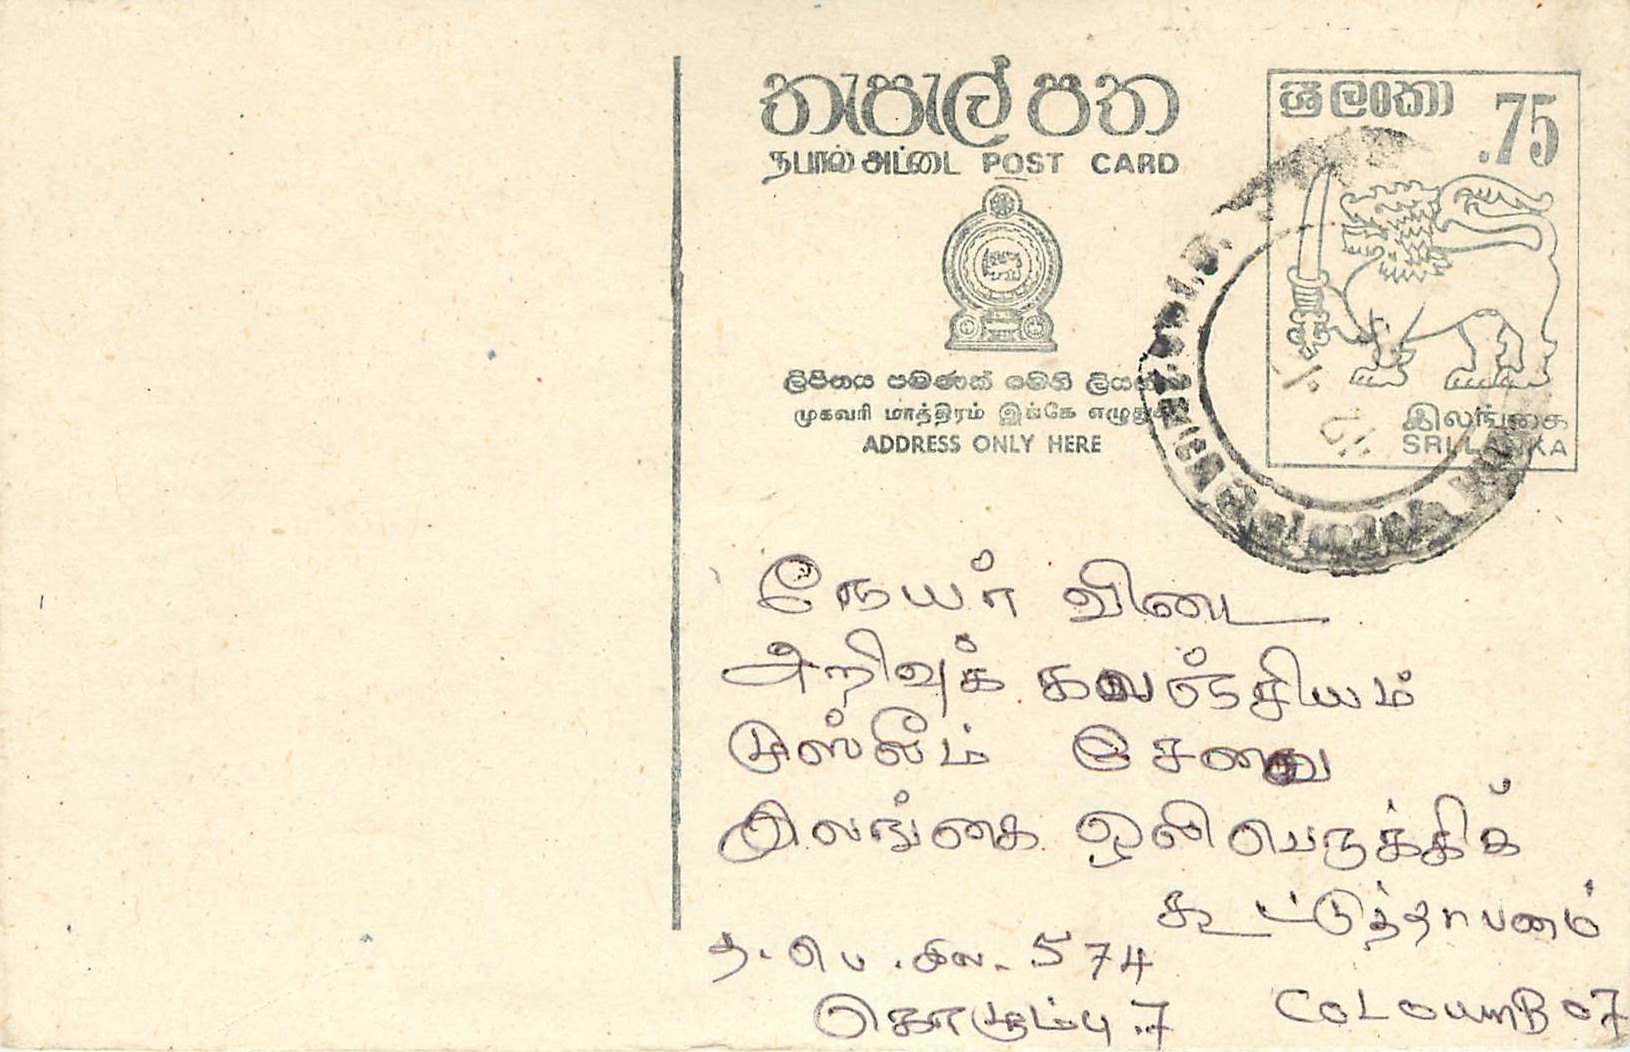 තැපැල් පත
தபால் அட்டை POST CARD
ශ්‍රී ලංකා
.75
ලිපිනය පමණක් මෙහි ලියන්න
முகவரி மாத்திரம் இங்கே எழுதுக
ADDRESS ONLY HERE
இலங்கை
SRI LANKA
நேயர் விடை
அறிவுக் களஞ்சியம்
முஸ்லீம் சேவை
இலங்கை ஒலிபெருக்கிக்
கூட்டுத்தாபனம்
த. பெ. இல. 574
கொழும்பு.7 COLOUMB 07